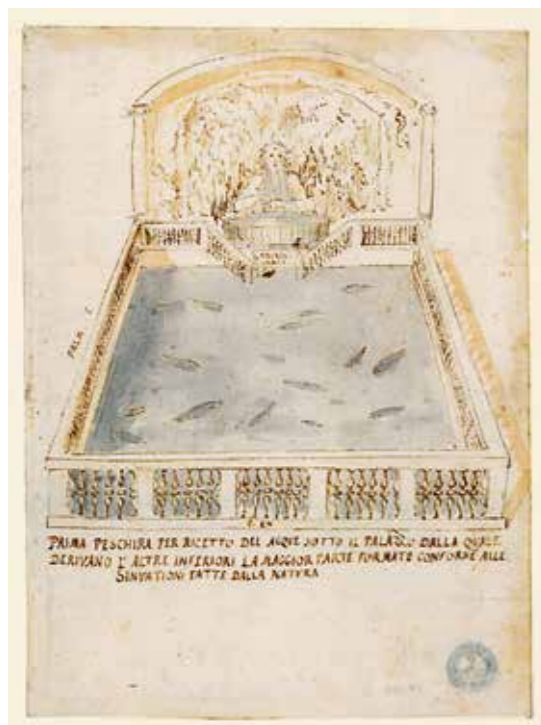 PALM
PRIMA PESCHIRA PER RICETTO DEL ACQUE SOTTO IL PALAZZO DALLA QUALE
DERIVANO L ALTRE INFERIORI LA MAGGIOR PARTE FORMATE CONFORME ALLE
SINVATIONI FATTE DALLA NATVRA